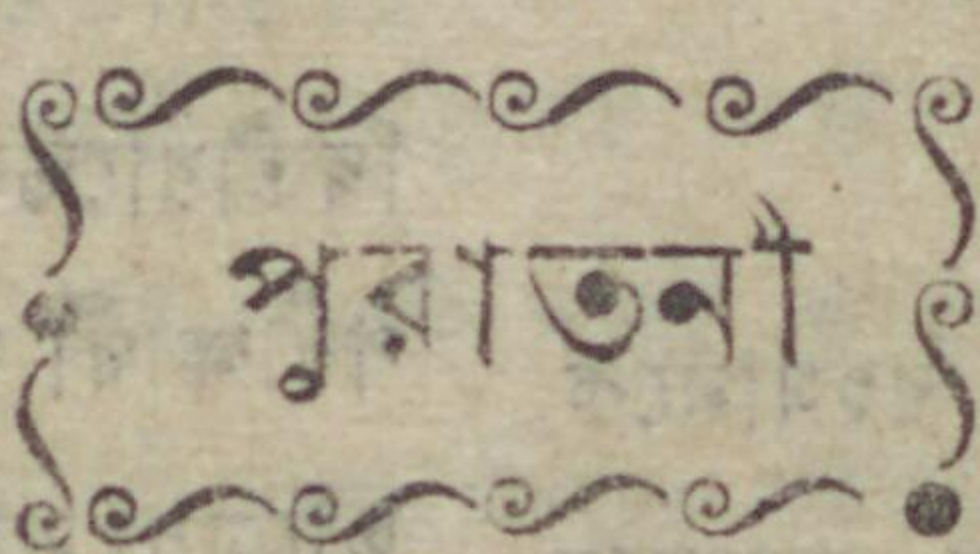 পুরাতনী